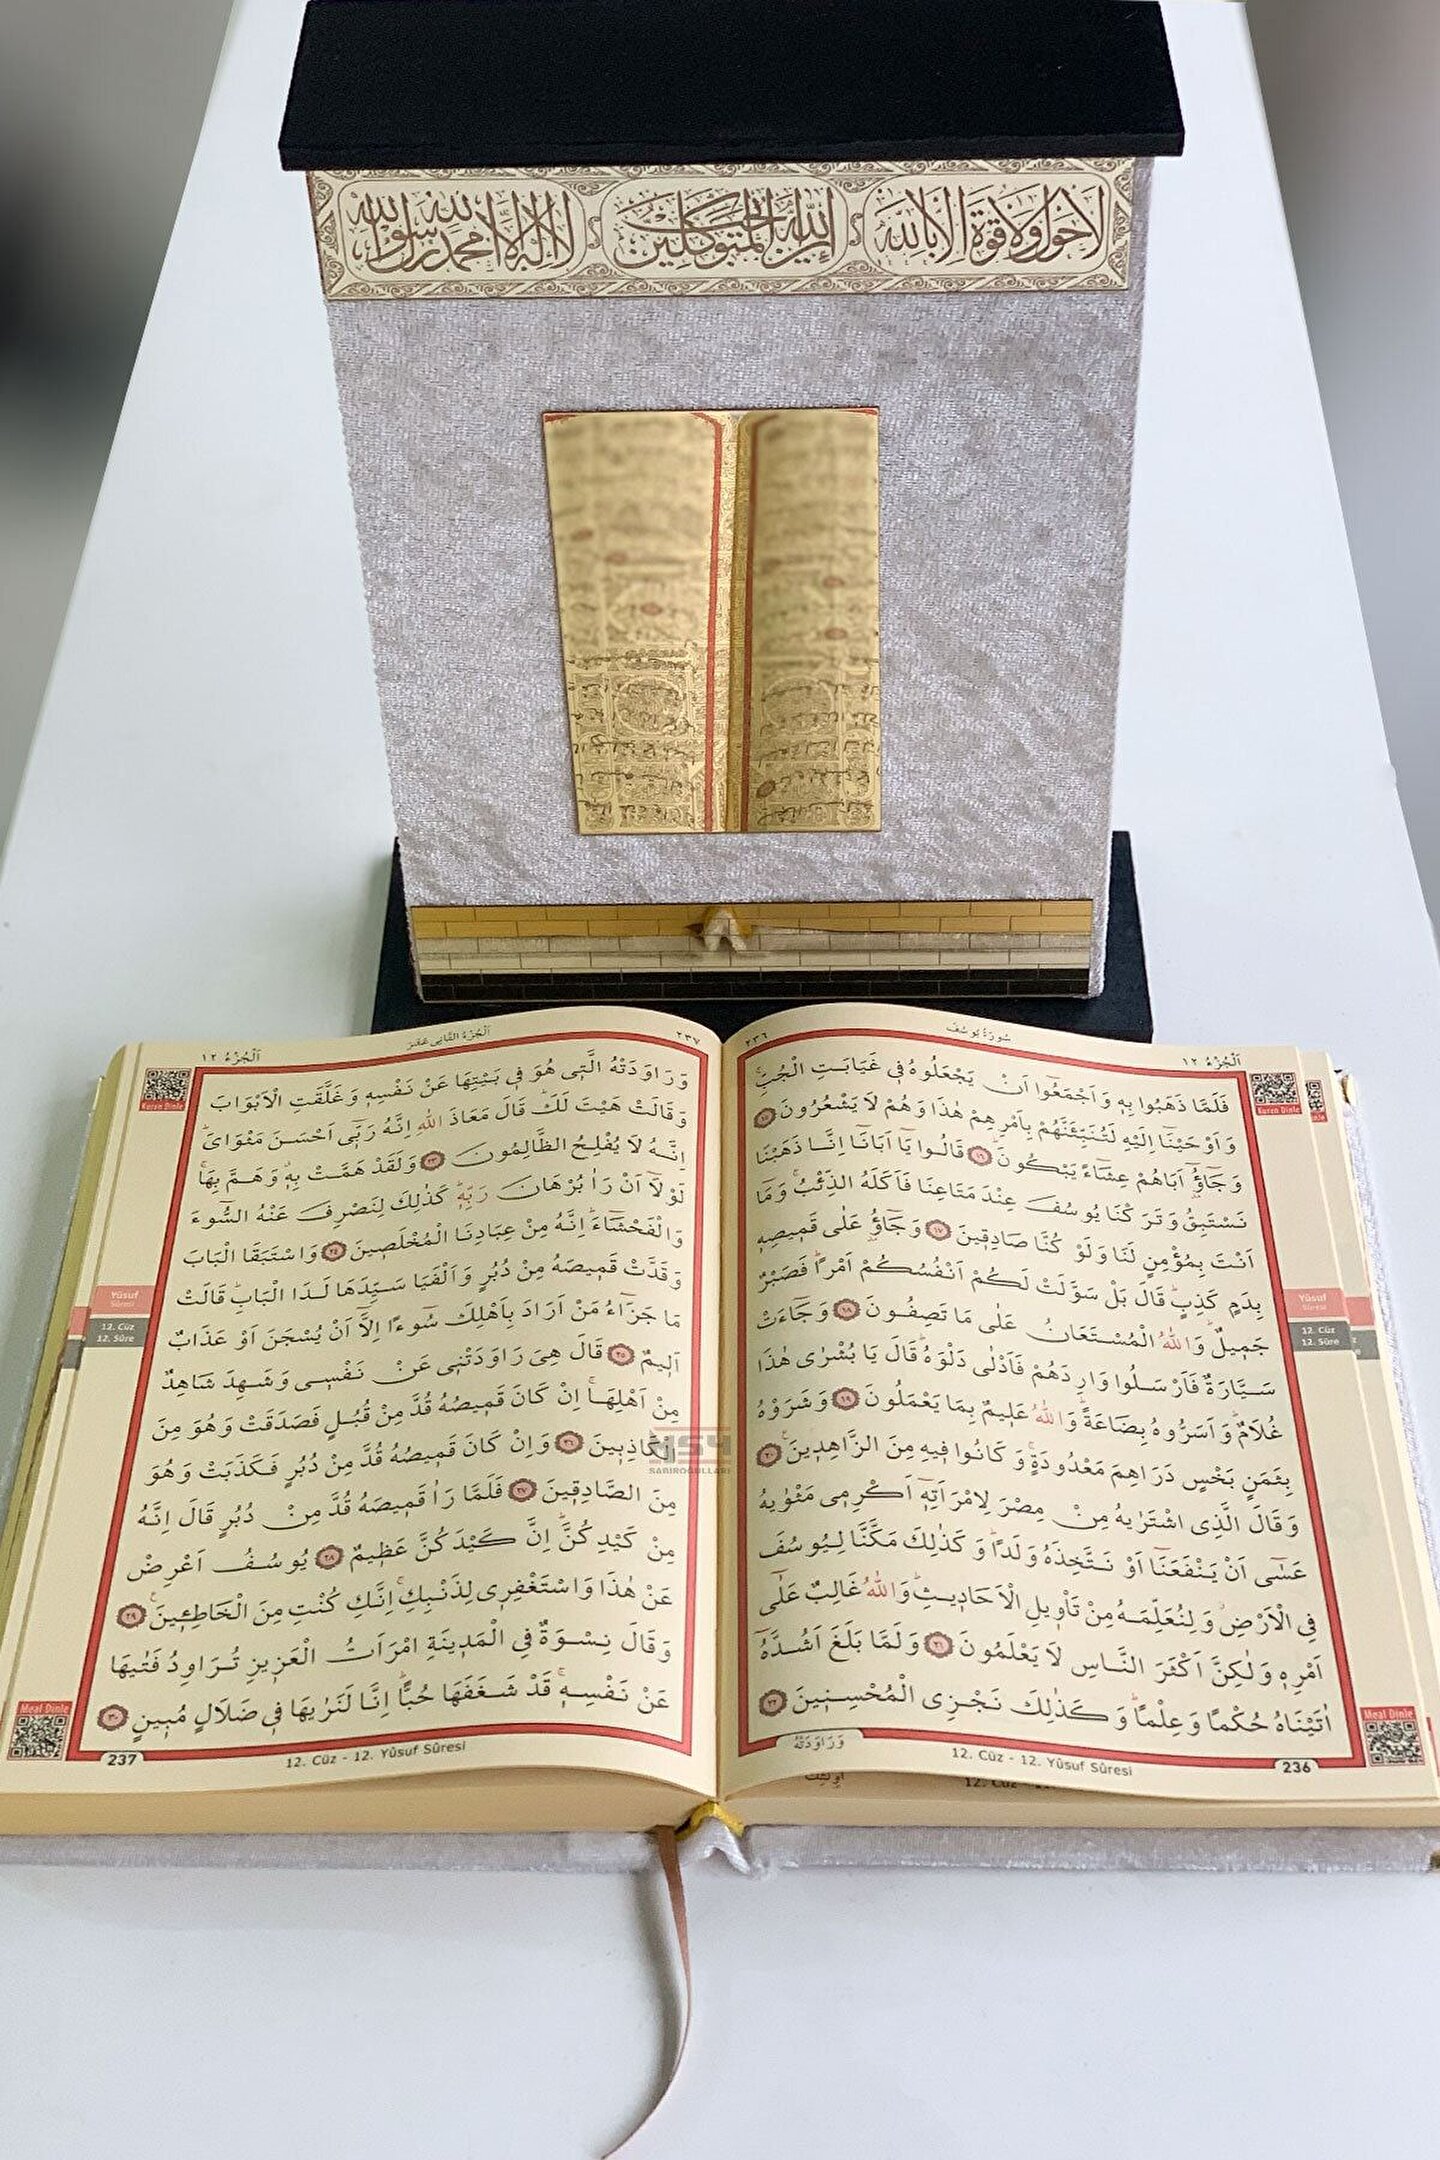 لا حول ولا قوة الا بالله
إن الله يحب المتوكلين
لا اله الا الله محمد رسول الله
اَلْجُزْءُ ١٢
سُورَةُ يُوسُفَ
٢٣٦
Kuran Dinle
فَلَمَّا ذَهَبُوا بِه۪ وَاَجْمَعُٓوا اَنْ يَجْعَلُوهُ ف۪ي غَيَابَتِ الْجُبِّۚ
وَاَوْحَيْنَٓا اِلَيْهِ لَتُنَبِّئَنَّهُمْ بِاَمْرِهِمْ هٰذَا وَهُمْ لَا يَشْعُرُونَ ١٥
وَجَٓاؤُٓ۫ اَبَاهُمْ عِشَٓاءً يَبْكُونَۜ ١٦ قَالُوا يَٓا اَبَانَٓا اِنَّا ذَهَبْنَا
نَسْتَبِقُ وَتَرَكْنَا يُوسُفَ عِنْدَ مَتَاعِنَا فَاَكَلَهُ الذِّئْبُۚ وَمَٓا
اَنْتَ بِمُؤْمِنٍ لَنَا وَلَوْ كُنَّا صَادِق۪ينَ ١٧ وَجَٓاؤُ۫ عَلٰى قَم۪يصِه۪
بِدَمٍ كَذِبٍۜ قَالَ بَلْ سَوَّلَتْ لَكُمْ اَنْفُسُكُمْ اَمْرًاۜ فَصَبْرٌ
جَم۪يلٌۜ وَاللّٰهُ الْمُسْتَعَانُ عَلٰى مَا تَصِفُونَ ١٨ وَجَٓاءَتْ
سَيَّارَةٌ فَاَرْسَلُوا وَارِدَهُمْ فَاَدْلٰى دَلْوَهُۜ قَالَ يَا بُشْرٰى هٰذَا
غُلَامٌۜ وَاَسَرُّوهُ بِضَاعَةًۜ وَاللّٰهُ عَل۪يمٌ بِمَا يَعْمَلُونَ ١٩ وَشَرَوْهُ
بِثَمَنٍ بَخْسٍ دَرَاهِمَ مَعْدُودَةٍۚ وَكَانُوا ف۪يهِ مِنَ الزَّاهِد۪ينَ۟ ٢٠
وَقَالَ الَّذِي اشْتَرٰيهُ مِنْ مِصْرَ لِامْرَاَتِه۪ٓ اَكْرِم۪ي مَثْوٰيهُ
عَسٰٓى اَنْ يَنْفَعَنَٓا اَوْ نَتَّخِذَهُ وَلَدًاۜ وَكَذٰلِكَ مَكَّنَّا لِيُوسُفَ
فِي الْاَرْضِۘ وَلِنُعَلِّمَهُ مِنْ تَأْو۪يلِ الْاَحَاد۪يثِۜ وَاللّٰهُ غَالِبٌ عَلٰٓى
اَمْرِه۪ وَلٰكِنَّ اَكْثَرَ النَّاسِ لَا يَعْلَمُونَ ٢١ وَلَمَّا بَلَغَ اَشُدَّهُٓ
اٰتَيْنَاهُ حُكْمًا وَعِلْمًاۜ وَكَذٰلِكَ نَجْزِي الْمُحْسِن۪ينَ ٢٢
Yûsuf
Sûresi
12. Cüz
12. Sûre
Meal Dinle
وَرَاوَدَتْهُ
12. Cüz - 12. Yûsuf Sûresi
236
٢٣٧
اَلْجُزْءُ الثَّانِى عَشَرَ
اَلْجُزْءُ ١٢
Kuran Dinle
وَرَاوَدَتْهُ الَّت۪ي هُوَ ف۪ي بَيْتِهَا عَنْ نَفْسِه۪ وَغَلَّقَتِ الْاَبْوَابَ
وَقَالَتْ هَيْتَ لَكَۜ قَالَ مَعَاذَ اللّٰهِ اِنَّهُ رَبّ۪ٓي اَحْسَنَ مَثْوَايَۜ
اِنَّهُ لَا يُفْلِحُ الظَّالِمُونَ ٢٣ وَلَقَدْ هَمَّتْ بِه۪ۗ وَهَمَّ بِهَاۚ
لَوْلَٓا اَنْ رَاٰ بُرْهَانَ رَبِّه۪ۜ كَذٰلِكَ لِنَصْرِفَ عَنْهُ السُّٓوءَ
وَالْفَحْشَٓاءَۜ اِنَّهُ مِنْ عِبَادِنَا الْمُخْلَص۪ينَ ٢٤ وَاسْتَبَقَا الْبَابَ
وَقَدَّتْ قَم۪يصَهُ مِنْ دُبُرٍ وَاَلْفَيَا سَيِّدَهَا لَدَا الْبَابِۜ قَالَتْ
مَا جَزَٓاءُ مَنْ اَرَادَ بِاَهْلِكَ سُٓوءًا اِلَّٓا اَنْ يُسْجَنَ اَوْ عَذَابٌ
اَل۪يمٌ ٢٥ قَالَ هِيَ رَاوَدَتْن۪ي عَنْ نَفْس۪ي وَشَهِدَ شَاهِدٌ
مِنْ اَهْلِهَاۚ اِنْ كَانَ قَم۪يصُهُ قُدَّ مِنْ قُبُلٍ فَصَدَقَتْ وَهُوَ مِنَ
الْكَاذِب۪ينَ ٢٦ وَاِنْ كَانَ قَم۪يصُهُ قُدَّ مِنْ دُبُرٍ فَكَذَبَتْ وَهُوَ
مِنَ الصَّادِق۪ينَ ٢٧ فَلَمَّا رَاٰ قَم۪يصَهُ قُدَّ مِنْ دُبُرٍ قَالَ اِنَّهُ
مِنْ كَيْدِكُنَّۜ اِنَّ كَيْدَكُنَّ عَظ۪يمٌ ٢٨ يُوسُفُ اَعْرِضْ
عَنْ هٰذَا وَاسْتَغْفِر۪ي لِذَنْبِكِۚ اِنَّكِ كُنْتِ مِنَ الْخَاطِـ۪ٔينَ۟ ٢٩
وَقَالَ نِسْوَةٌ فِي الْمَد۪ينَةِ امْرَاَتُ الْعَز۪يزِ تُرَاوِدُ فَتٰيهَا
عَنْ نَفْسِه۪ۚ قَدْ شَغَفَهَا حُبًّاۜ اِنَّا لَنَرٰيهَا ف۪ي ضَلَالٍ مُب۪ينٍ ٣٠
Yûsuf
Sûresi
12. Cüz
12. Sûre
Meal Dinle
237
12. Cüz - 12. Yûsuf Sûresi
HSY
SABIROĞULLARI